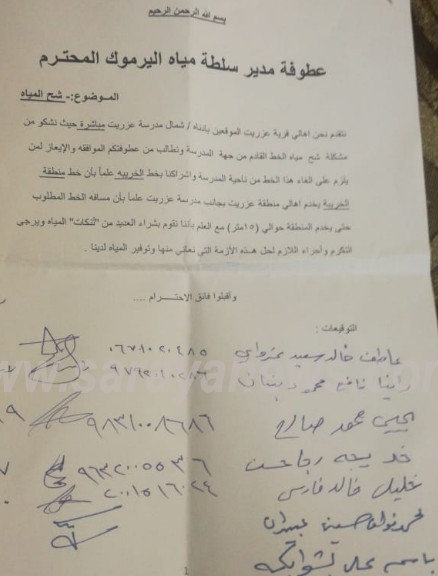 بسم الله الرحمن الرحيم
عطوفة مدير سلطة مياه اليرموك المحترم
الموضوع:- شح المياه
نتقدم نحن اهالي قرية عزريت الموقعين بادناه / شمال مدرسة عزريت مباشرة حيث نشكو من
مشكلة شح مياه الخط القادم من جهة المدرسة ونطالب من عطوفتكم الموافقه والإيعاز لمن
يلزم على الغاء هذا الخط من ناحية المدرسة واشراكنا بخط الخريبه علماً بأن خط منطقة
الخريبة يخدم اهالي منطقة عزريت بجانب مدرسة عزريت علماً بأن مسافه الخط المطلوب
حتى يخدم المنطقة حوالي (١٥متر) مع العلم بأننا نقوم بشراء العديد من "تنكات" المياه ويرجى
التكرم وأجراء اللازم لحل هذه الأزمة التي نعاني منها وتوفير المياه لدينا .
وأقبلوا فائق الاحترام ....
التوقيعات :
عاطف خالد سعيد
محمد
يحيى محمد صالح ٩٨٣١٠٠٨٦٨٦
خديجه رجا حسن ٩٦٣٢٠٠٥٥٣٦
خليل خالد فارس ٢٠٠١٥١٦٠٢٤
حسين
باسم علي
1